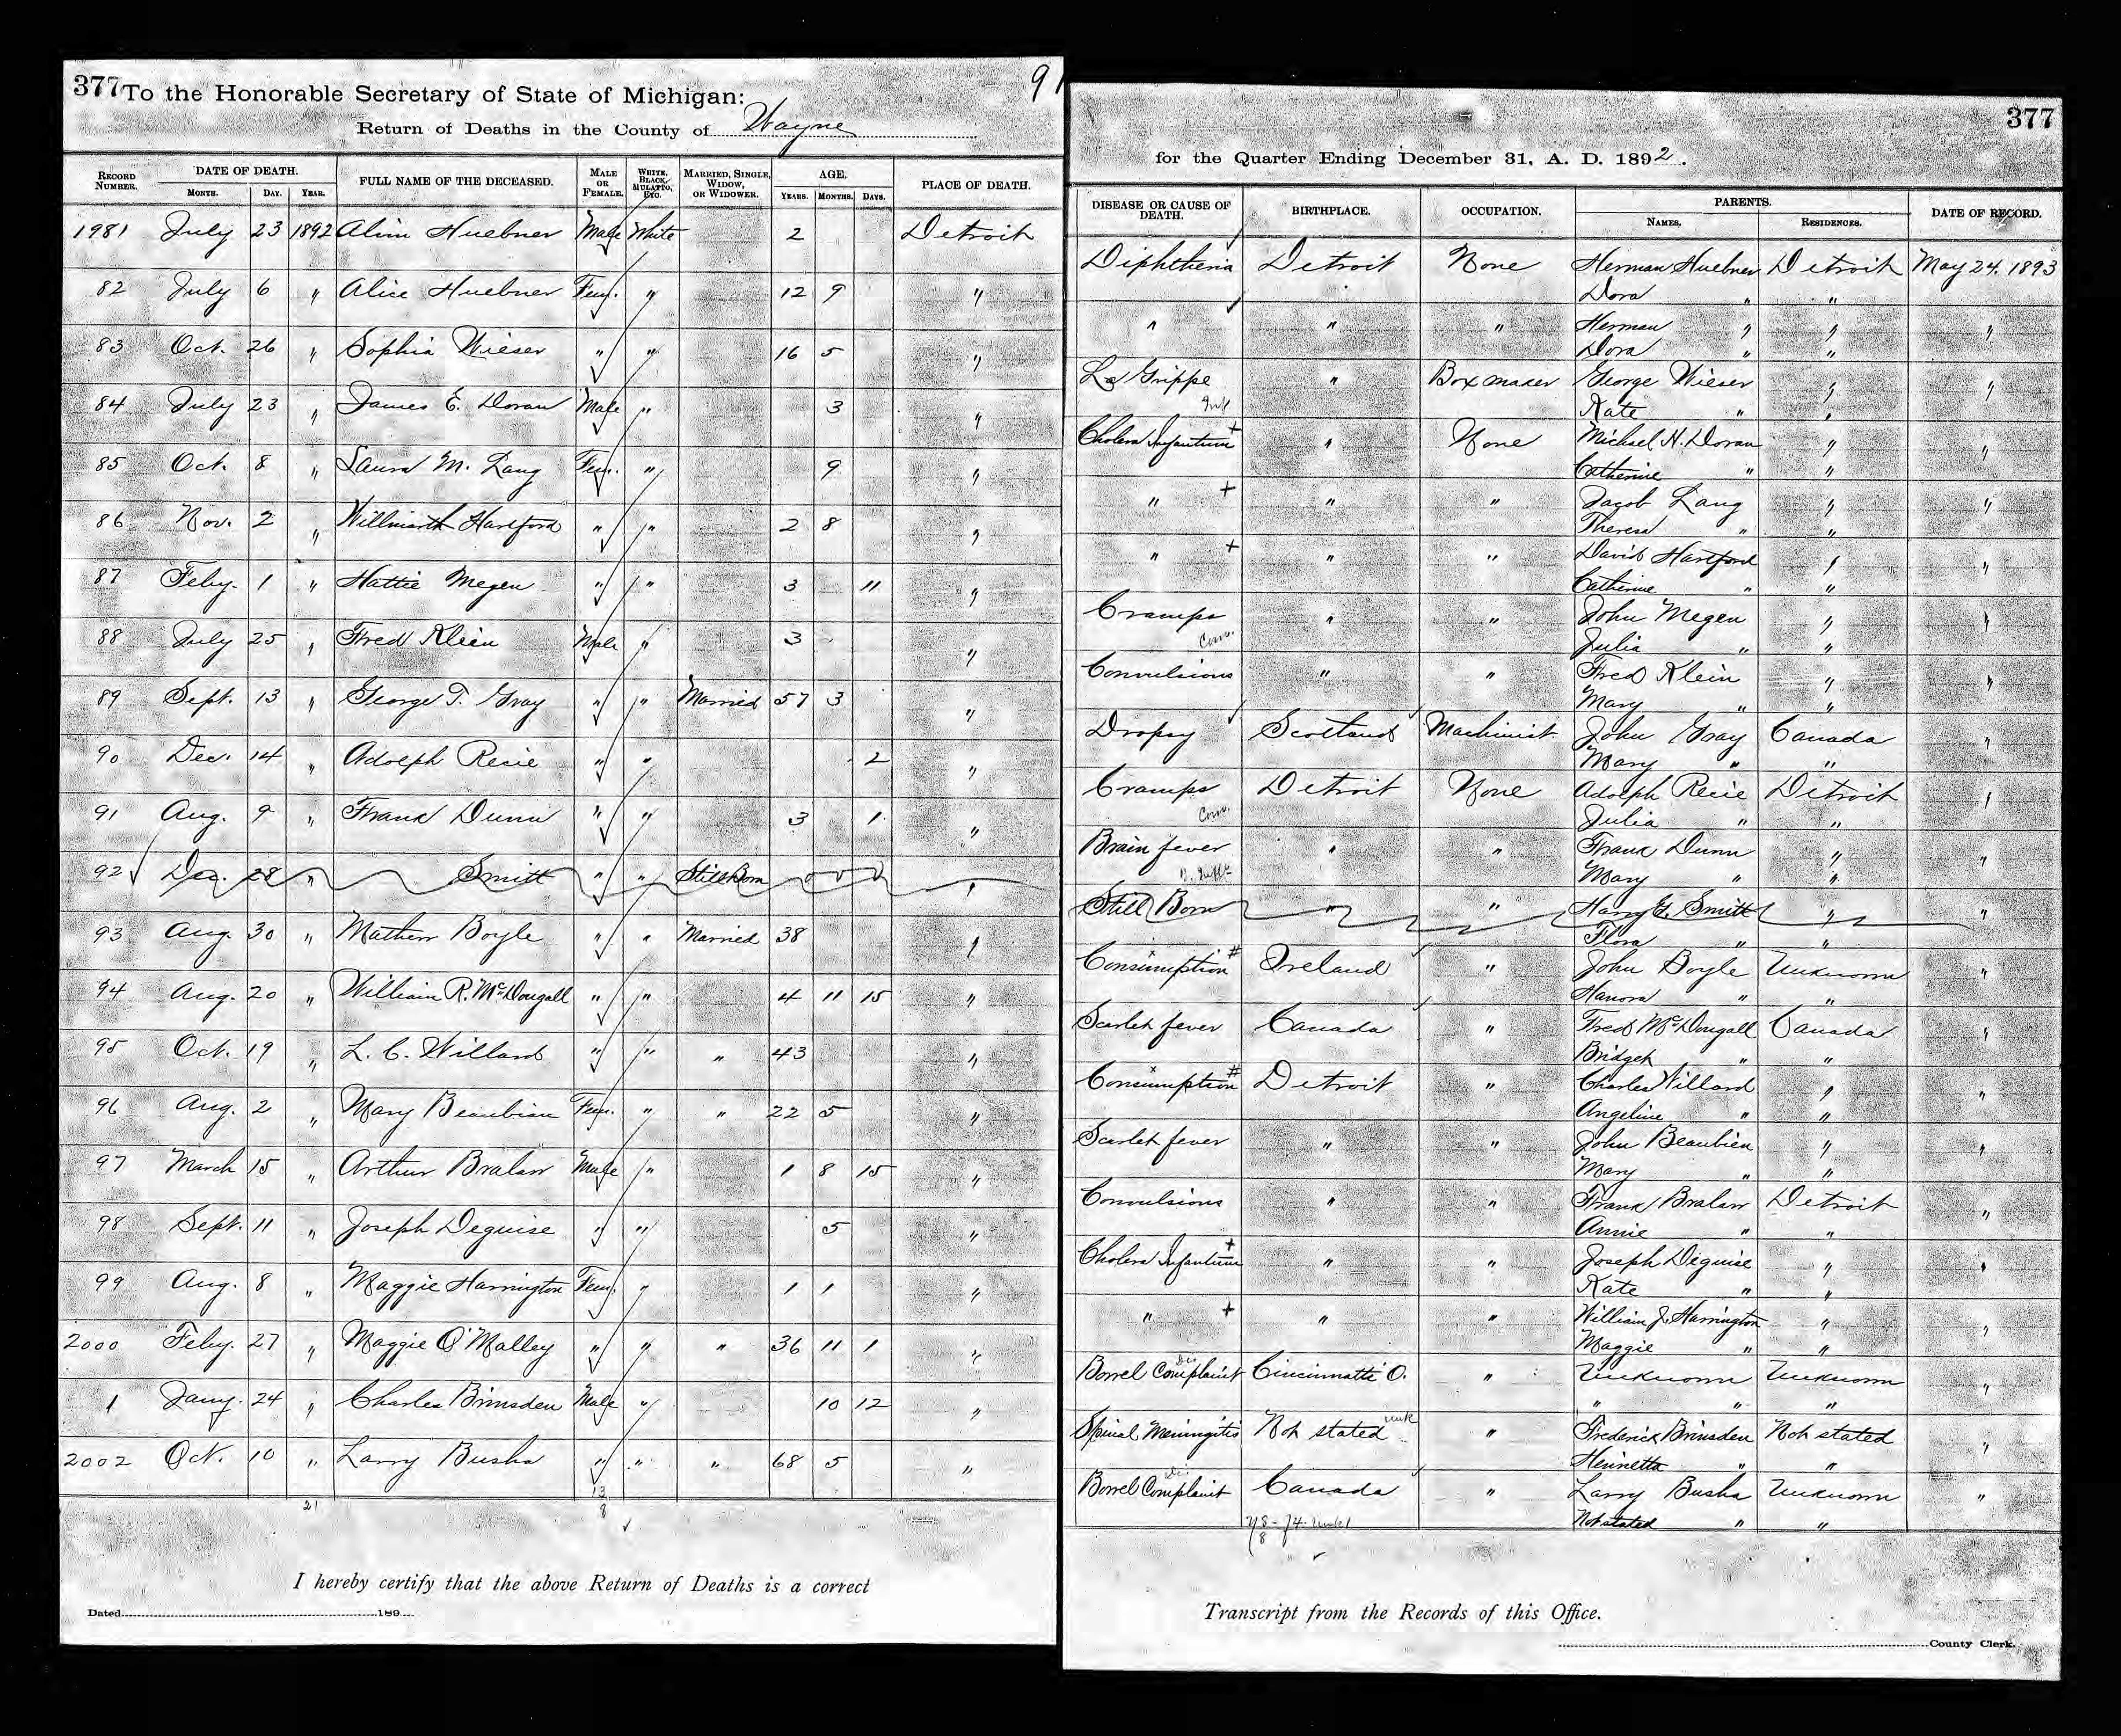 377 To the Honorable Secretary of State of Michigan: 91
Return of Deaths in the County of Wayne
RECORD NUMBER. DATE OF DEATH. MONTH. DAY. YEAR. FULL NAME OF THE DECEASED. MALE OR FEMALE. WHITE, BLACK, MULATTO, ETC. MARRIED, SINGLE, WIDOW, OR WIDOWER. AGE. YEARS. MONTHS. DAYS. PLACE OF DEATH.
1981 July 23 1892 Huebner Male White 2 Detroit
82 July 6 " Alice Huebner Fem. " 12 9 "
83 Oct. 26 " Sophia Wieser " " 16 5 "
84 July 23 " James E. Doran Male " 3 "
85 Oct. 8 " Laura M. Lang Fem. " 9 "
86 Nov. 2 " Hartford " " 2 8 "
87 Feby. 1 " Hattie Megen " " 3 11 "
88 July 25 " Fred Klein Male " 3 "
89 Sept. 13 " George T. Gray " " Married 57 3 "
90 Dec. 14 " Adolph Recie " " 2 "
91 Aug. 9 " Frank Dunn " " 3 1 "
92 Dec. 28 " Smitt " " Still Born 0 0 0 "
93 Aug. 30 " Mathew Boyle " " Married 38 "
94 Aug. 20 " William R. McDougall " " 4 11 15 "
95 Oct. 19 " L. C. Willard " " " 43 "
96 Aug. 2 " Mary Beaubian Fem. " " 22 5 "
97 March 15 " Arthur Bralaw Male " 1 8 15 "
98 Sept. 11 " Joseph Deguise " " 5 "
99 Aug. 8 " Maggie Harrington Fem. " 1 1 "
2000 Feby. 27 " Maggie O'Malley " " " 36 11 1 "
1 Jany. 24 " Charles Brinsden Male " 10 12 "
2002 Oct. 10 " Larry Busha " " " 68 5 "
21 13
8
I hereby certify that the above Return of Deaths is a correct
Dated 189
377
for the Quarter Ending December 31, A. D. 1892.
DISEASE OR CAUSE OF DEATH. BIRTHPLACE. OCCUPATION. PARENTS. NAMES. RESIDENCES. DATE OF RECORD.
Diphtheria Detroit None Herman Huebner Detroit May 24, 1893
Dora " "
" " " Herman " " "
Dora " "
La Grippe " Box maker George Wieser " "
Kate " "
Cholera Infantum + " None Michael H. Doran " "
Catherine " "
" + " " Jacob Lang " "
Theresa " "
" + " " David Hartford " "
Catherine " "
Cramps " " John Megen " "
Conv. Julia " "
Convulsions " " Fred Klein " "
Mary " "
Dropsy Scotland Machinist John Gray Canada "
Mary " "
Cramps Detroit None Adolph Recie Detroit "
Conv. Julia " "
Brain fever " " Frank Dunn " "
Mary " "
Still Born " " Harry G. Smitt " "
Flora " "
Consumption # Ireland " John Boyle Unknown "
Hanora " "
Scarlet fever Canada " Fred McDougall Canada "
Bridget " "
Consumption # Detroit " Charles Willard " "
Angeline " "
Scarlet fever " " John Beaubien " "
Mary " "
Convulsions " " Frank Bralaw Detroit "
Annie " "
Cholera Infantum + " " Joseph Deguise " "
Kate " "
" + " " William J. Harrington " "
Maggie " "
Bowel Complaint Cincinnatti O. " Unknown Unknown "
" " "
Spinal Meningitis Not stated unk " Frederick Brinsden Not stated "
Henrietta " "
Bowel Complaint Canada " Larry Busha Unknown "
Not stated " "
Transcript from the Records of this Office.
County Clerk.